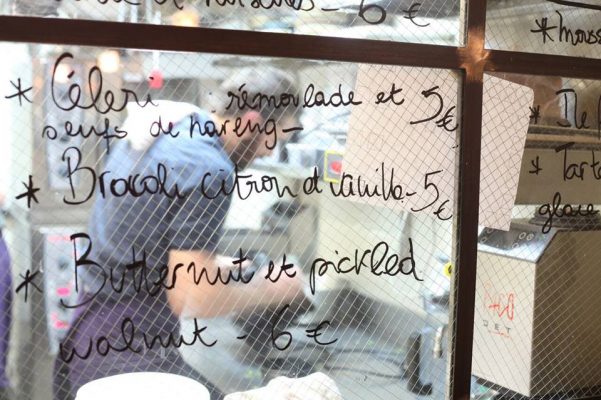 et 6 €
* Céleri rémoulade et 5€
oeufs de hareng -
* Brocoli citron & vanille - 5€
* Butternut et pickled
walnut - 6 €
* Mouss
*
* Tarte
glace